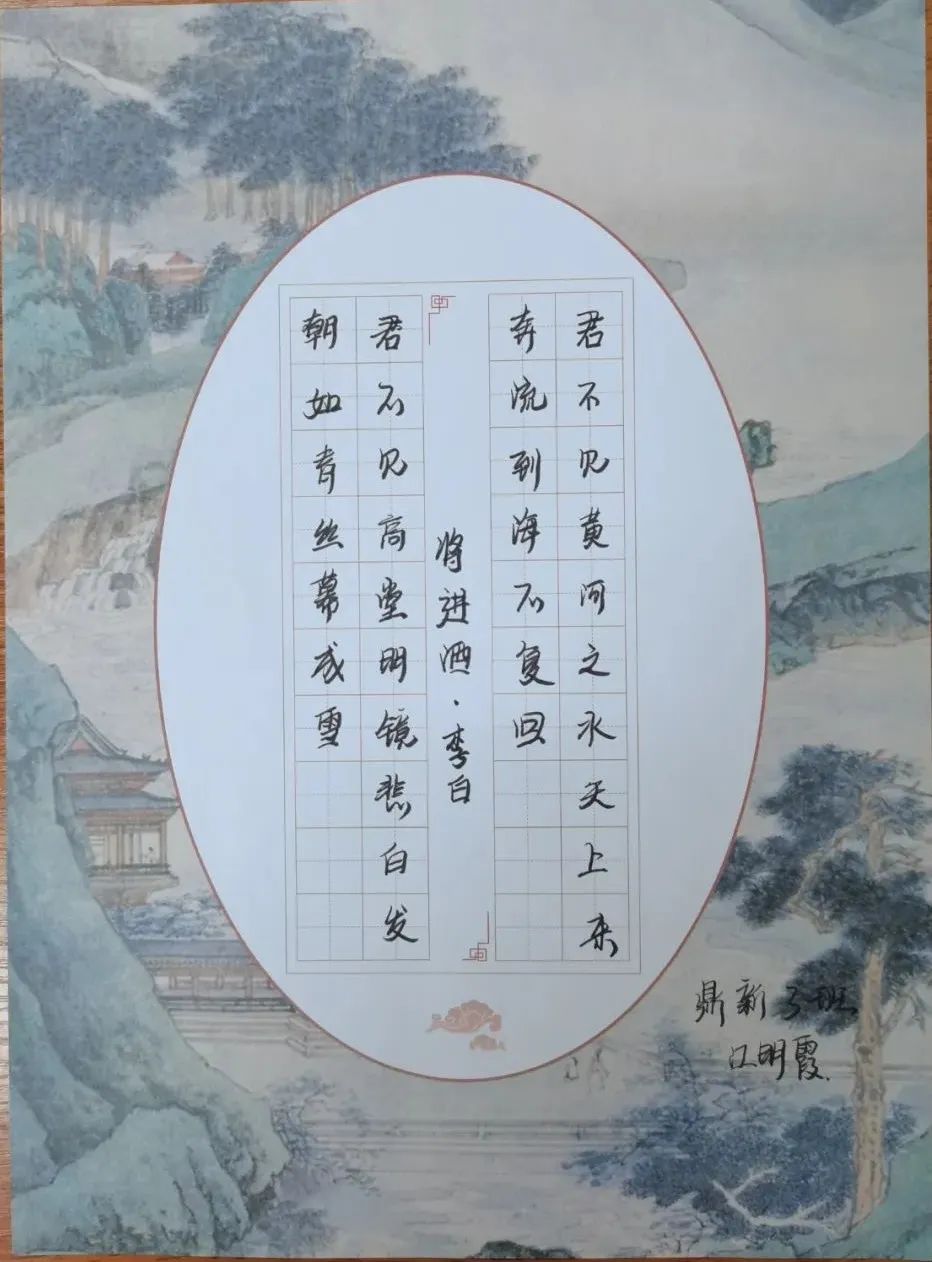 君不见黄河之水天上来
奔流到海不复回
将进酒·李白
君不见高堂明镜悲白发
朝如青丝幕成雪
鼎新3班
江明霞